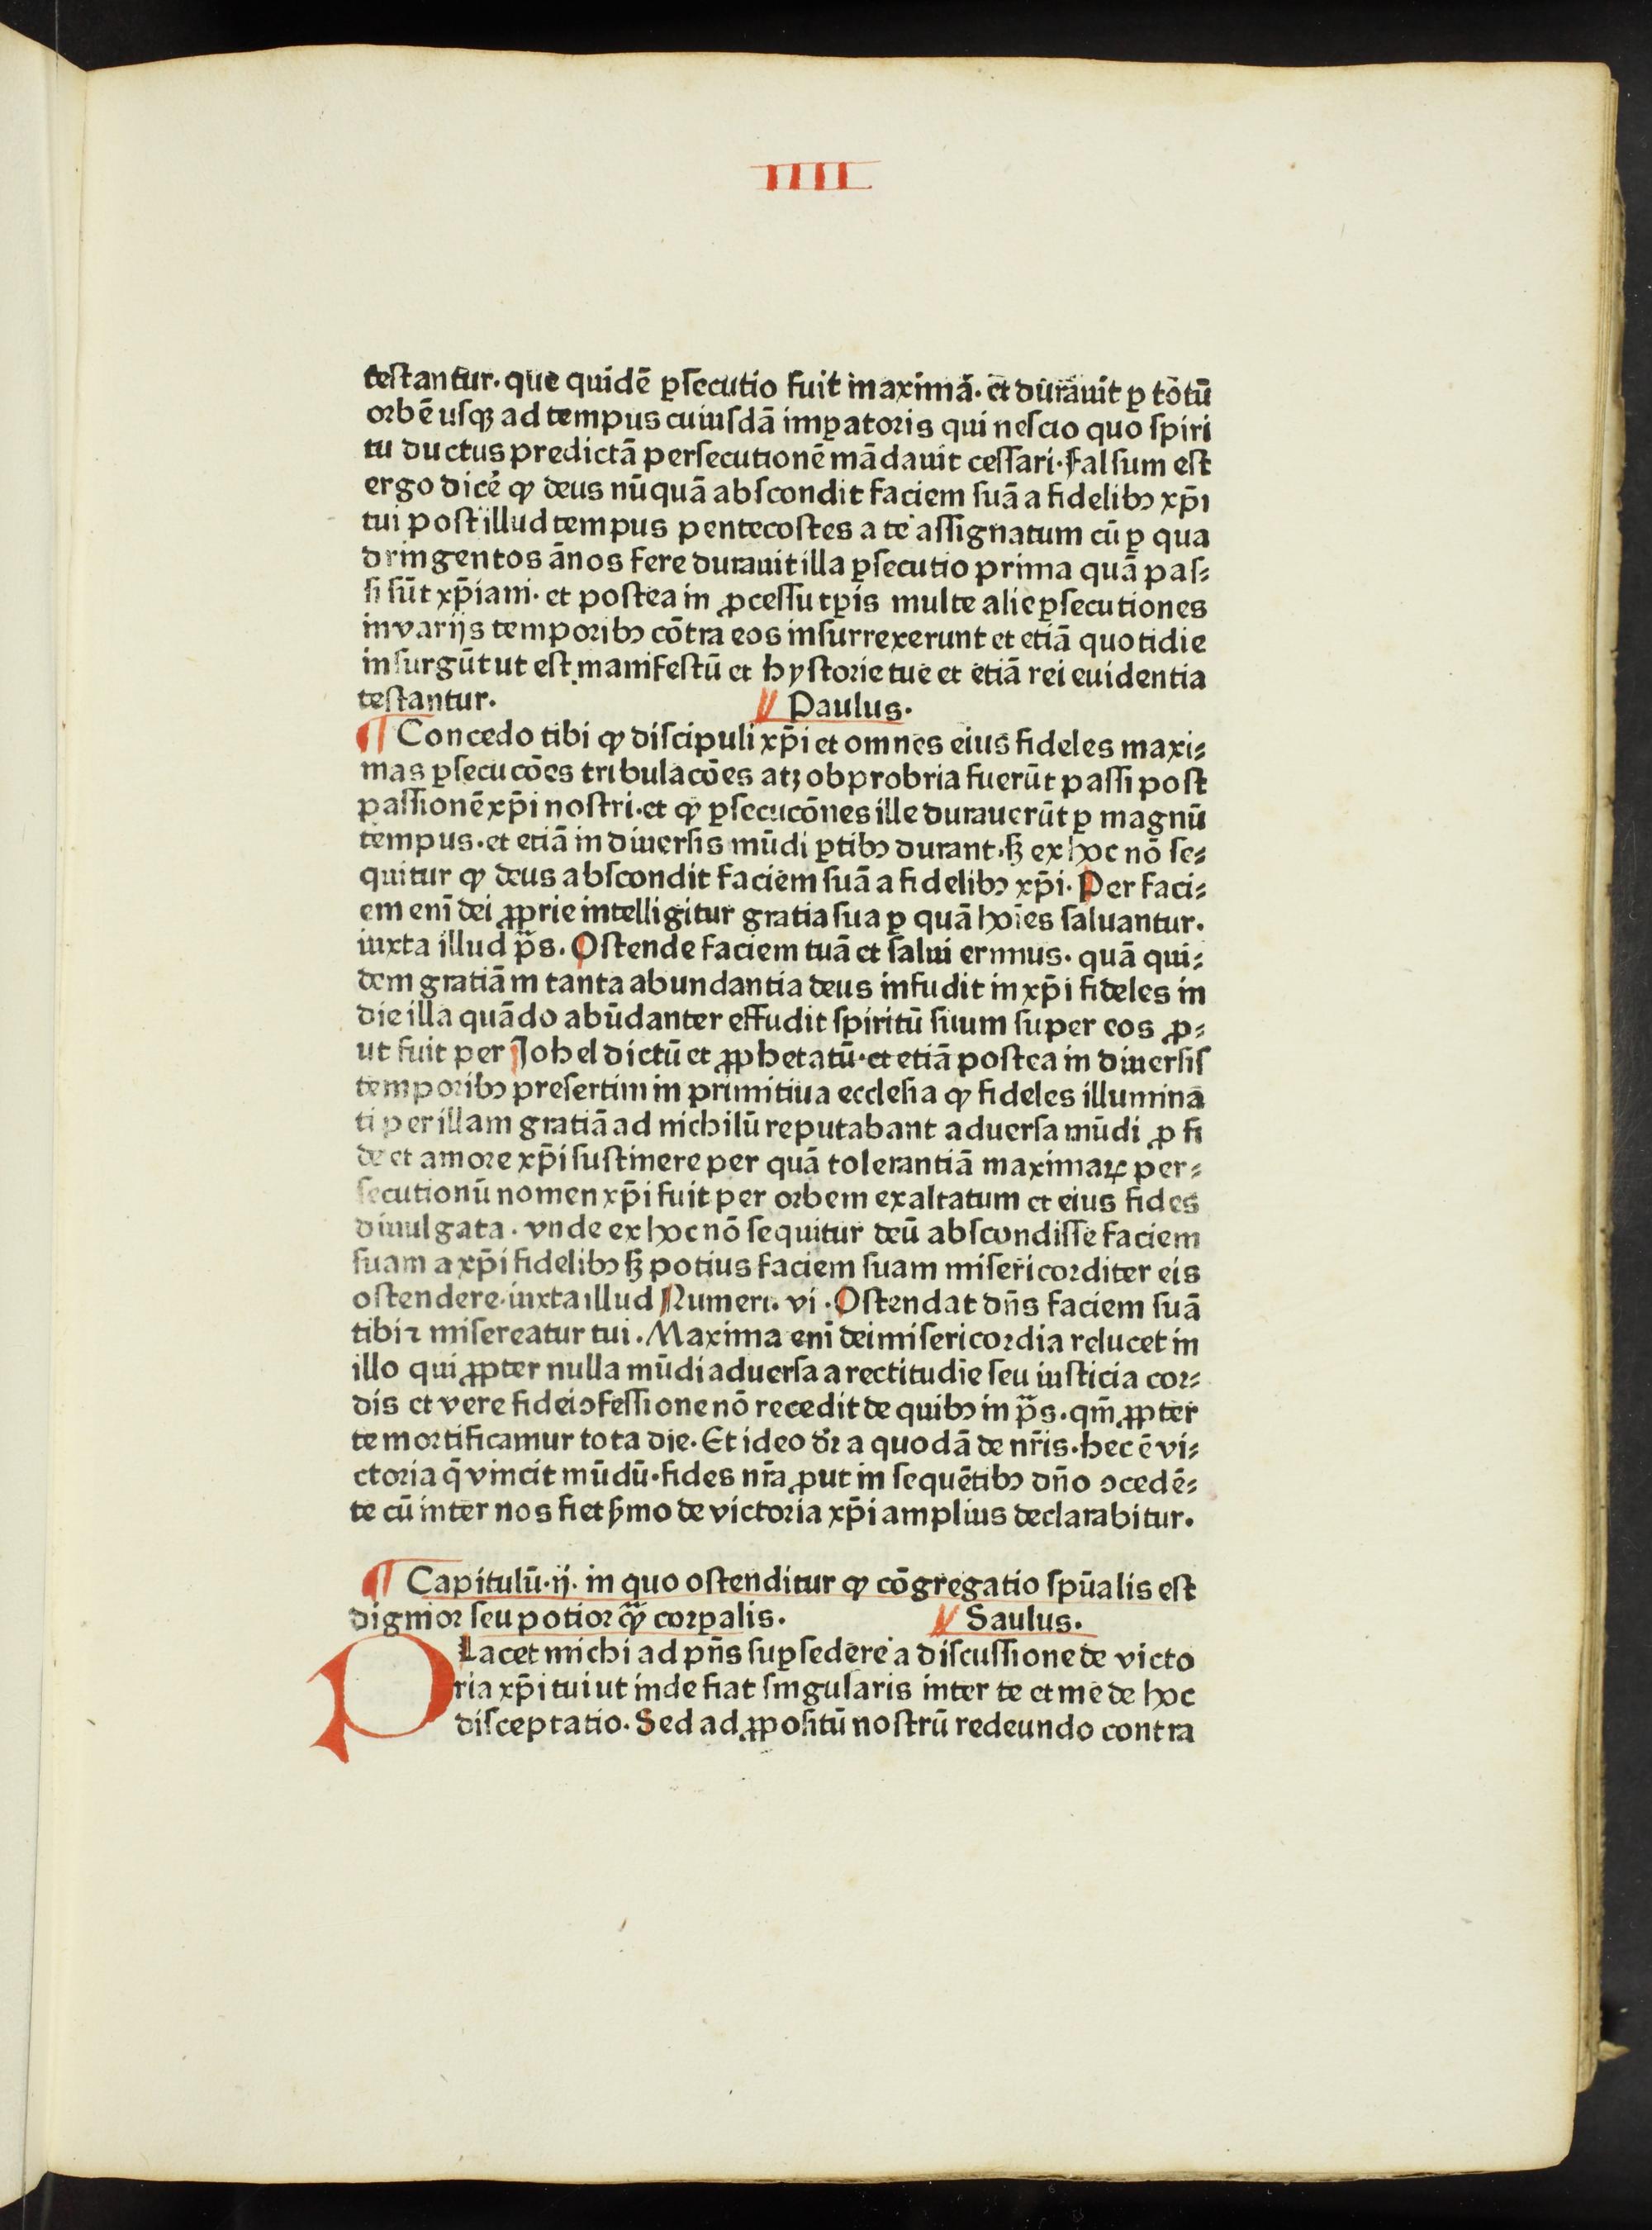 IIII
testantur. que quidē ꝑsecutio fuit maxima. et durauit ꝑ totū
orbē usqꝫ ad tempus cuiusdā imꝑatoris qui nescio quo spiri
tu ductus predictā persecutionē mādauit cessari. Falsum est
ergo dicē ꝙ deus nūquā abscondit faciem suā a fidelibꝰ xp̄i
tui post illud tempus pentecostes a te assignatum cū ꝑ qua
dringentos ānos fere durauit illa ꝑsecutio prima quā pas⸗
si sūt xp̄iani. et postea in ꝓcessu tp̄is multe alie ꝑsecutiones
in varijs temporibꝰ cōtra eos insurrexerunt et etiā quotidie
insurgūt ut est manifestū et hystorie tue et etiā rei euidentia
testantur. Paulus.
¶ Concedo tibi ꝙ discipuli xp̄i et omnes eius fideles maxi⸗
mas ꝑsecucōes tribulacōes atꝫ obprobria fuerūt passi post
passionē xp̄i nostri. et ꝙ ꝑsecucōnes ille durauerūt ꝑ magnū
tempus. et etiā in diuersis mūdi ꝑtibꝰ durant. sꝫ ex hoc nō se⸗
quitur ꝙ deus abscondit faciem suā a fidelibꝰ xp̄i. Per faci⸗
em enī dei ꝓprie intelligitur gratia sua ꝑ quā hoīes saluantur.
iuxta illud p̄s. Ostende faciem tuā et salui erimus. quā qui⸗
dem gratiā in tanta abundantia deus infudit in xp̄i fideles in
die illa quādo abūdanter effudit spiritū suum super eos ꝓ⸗
ut fuit per Johel dictū et ꝓphetatū. et etiā postea in diuersis
temporibꝰ presertim in primitiua ecclesia ꝙ fideles illumina
ti per illam gratiā ad nichilū reputabant aduersa mūdi ꝓ fi
de et amore xp̄i sustinere per quā tolerantiā maximaꝝ per⸗
secutionū nomen xp̄i fuit per orbem exaltatum et eius fides
diuulgata. vnde ex hoc nō sequitur deū abscondisse faciem
suam a xp̄i fidelibꝰ sꝫ potius faciem suam misericorditer eis
ostendere. iuxta illud Numeri. vi. Ostendat dn̄s faciem suā
tibi ⁊ misereatur tui. Maxima enī dei misericordia relucet in
illo qui ꝓpter nulla mūdi aduersa a rectitudīe seu iusticia cor⸗
dis et vere fidei ↄfessione nō recedit de quibꝰ in p̄s. qm̄ ꝓpter
te mortificamur tota die. Et ideo dr̄ a quodā de nr̄is. hec ē vi⸗
ctoria q̄ vincit mūdū. fides nr̄a ꝓut in sequētibꝰ dn̄o ↄcedē⸗
te cū inter nos fiet ẜmo de victoria xp̄i amplius declarabitur.
¶ Capitulū. ij. in quo ostenditur ꝙ cōgregatio spūalis est
dignior seu potior ꝙ̄ corꝑalis. Saulus.
PLacet michi ad pn̄s suꝑsedere a discussione de victo
ria xp̄i tui ut inde fiat singularis inter te et me de hoc
disceptatio. Sed ad ꝓpositū nostrū redeundo contra